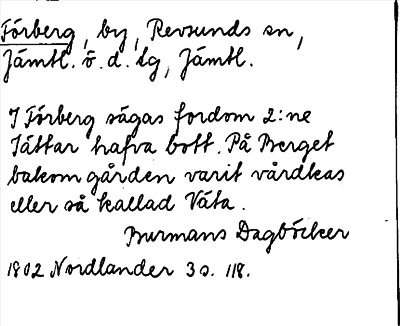 Förberg, by, Revsunds sn,
Jämtl. ö. d. lg, Jämtl.
I Förberg sägas fordom 2:ne
Jättar hafva bott. På Berget
bakom gården varit vårdkas
eller så kallad Våta.
Burmans Dagböcker
1802 Nordlander 3 s. 118.